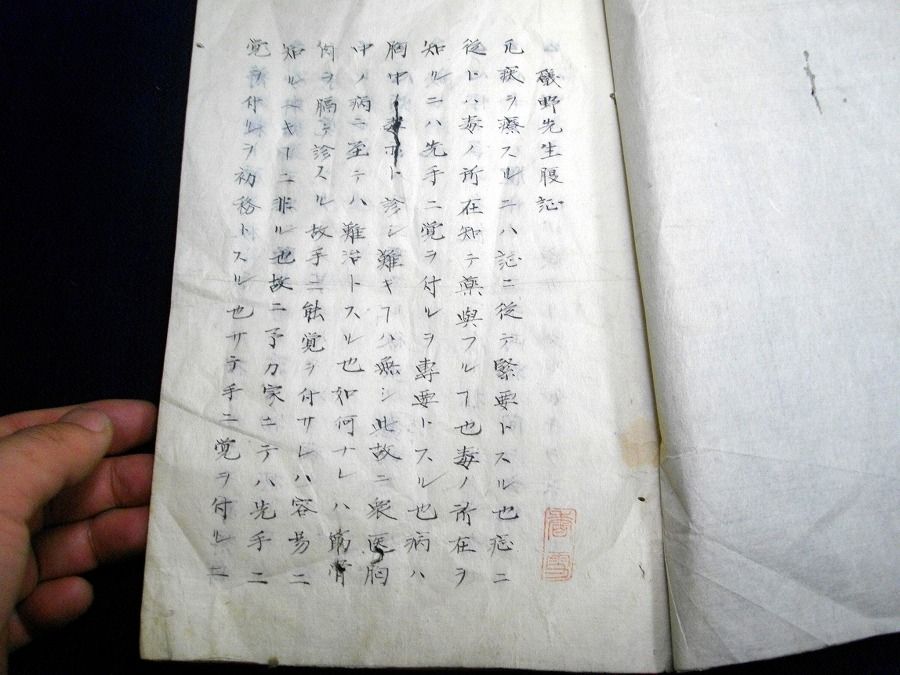 礒野先生腹証
凡疾ヲ療スルニハ証ニ従テ緊要トスル也証ニ
従トハ毒ノ所在知テ薬與フルヿ也毒ノ所在ヲ
知ルニハ先手ニ覚ヲ付ルヲ専要トスル也病ハ
胸中ノ ホト診シ難キヿハ無シ此故ニ衆医胸
中ノ病ニ至テハ難治トスル也如何ナレハ筋骨
肉ヲ隔テ診スル故手ニ能覚ヲ付サレハ容易ニ
知ルヘキヿニ非ル也故ニ予カ家ニテハ先手ニ
覚ヲ付ルヲ初務トスル也サテ手ニ覚ヲ付ルニ